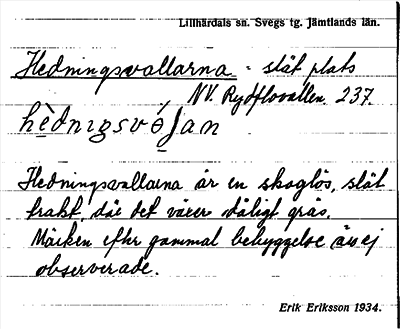 Lillhärdals sn. Svegs tg. Jämtlands län.
Hedningsvallarna - slät plats
NV. Rydflovallen. 237.
hèdnıgsvó̱ʃan
Hedningsvallarna är en skoglös, slät
trakt, där det växer dåligt gräs.
Märken efter gammal bebyggelse äro ej
observerade.
Erik Eriksson 1934.